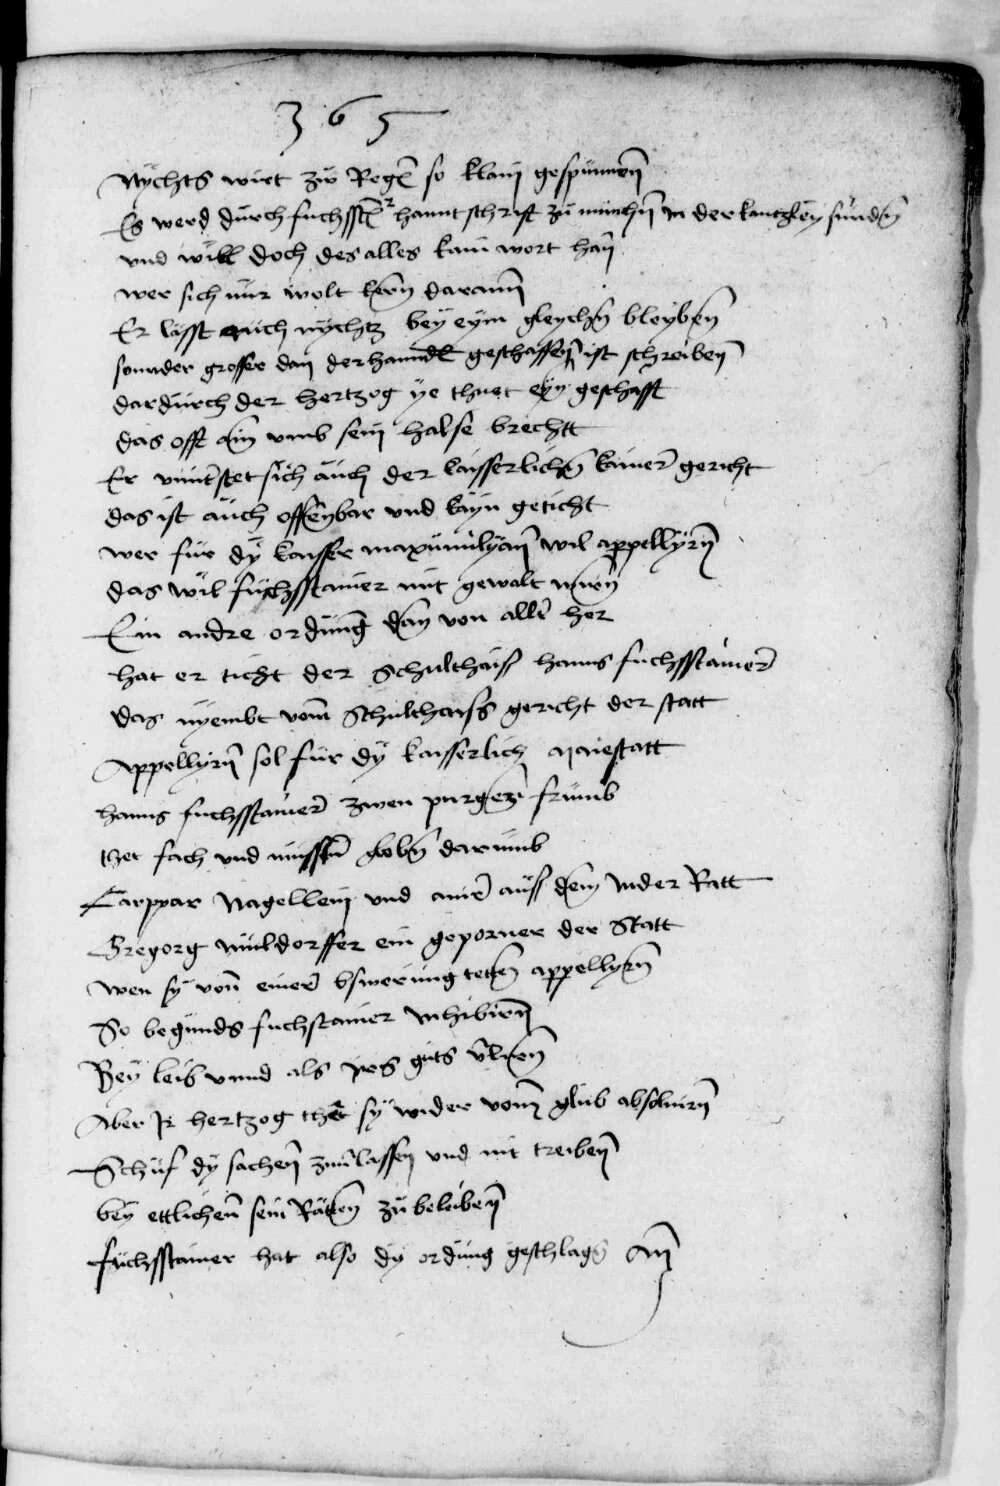 365
Nÿchts wirt zw Regē so klain gespunneñ
Es werd durch fuchsstēr hanntschrift zu münchñ in der kantzleÿ funden
vnd will doch des alles kain wort hañ
wer sich nur wolt kern daran
Er lässt auch nÿchtz beÿ eÿm gleychñ bleÿben
sonnder grosser dan der hanndl geschaffen ist schreiben
dardurch der hertzog ÿe thuet eÿn geschäfft
das offt aim vmb sein halse brechtt
Er vnnterstet sich auch der kaisserlichñ kamer gericht
das ist auch offenbar vnd kayn geticht
wer fur dÿ kaisser maxumilÿan wil appellÿrñ
das wil fuchsstainer mit gewalt wern
Ein andre ordnung dan von aller her
hat er ticht der Schulthaiss hanns fuchsstainer
das nÿembt vom Schulthaiss gericht der statt
Appellÿrñ sol fur dÿ kaisserlich maiestatt
hanns fuchsstainer zwen purger frumb
thet fach vnd muesstn globn darumb
Carppar Nagellein vnd ainer auss dem Inder Ratt
Gregorg müldorffer ein geporner der Statt
wen sÿ von einer bswerung teten appellÿrn
So begunds fuchstainer Inhibirn
Beÿ leib vnnd als irs guts
Aber Ir hertzog thet sÿ wider vom glüb absolvirñ
Schuf dÿ sachen zw lassen vnd nit treiben
beÿ ettlichen sein Räten zu beleiben
fuchsstainer hat also dÿ ordnung geschlagñ an